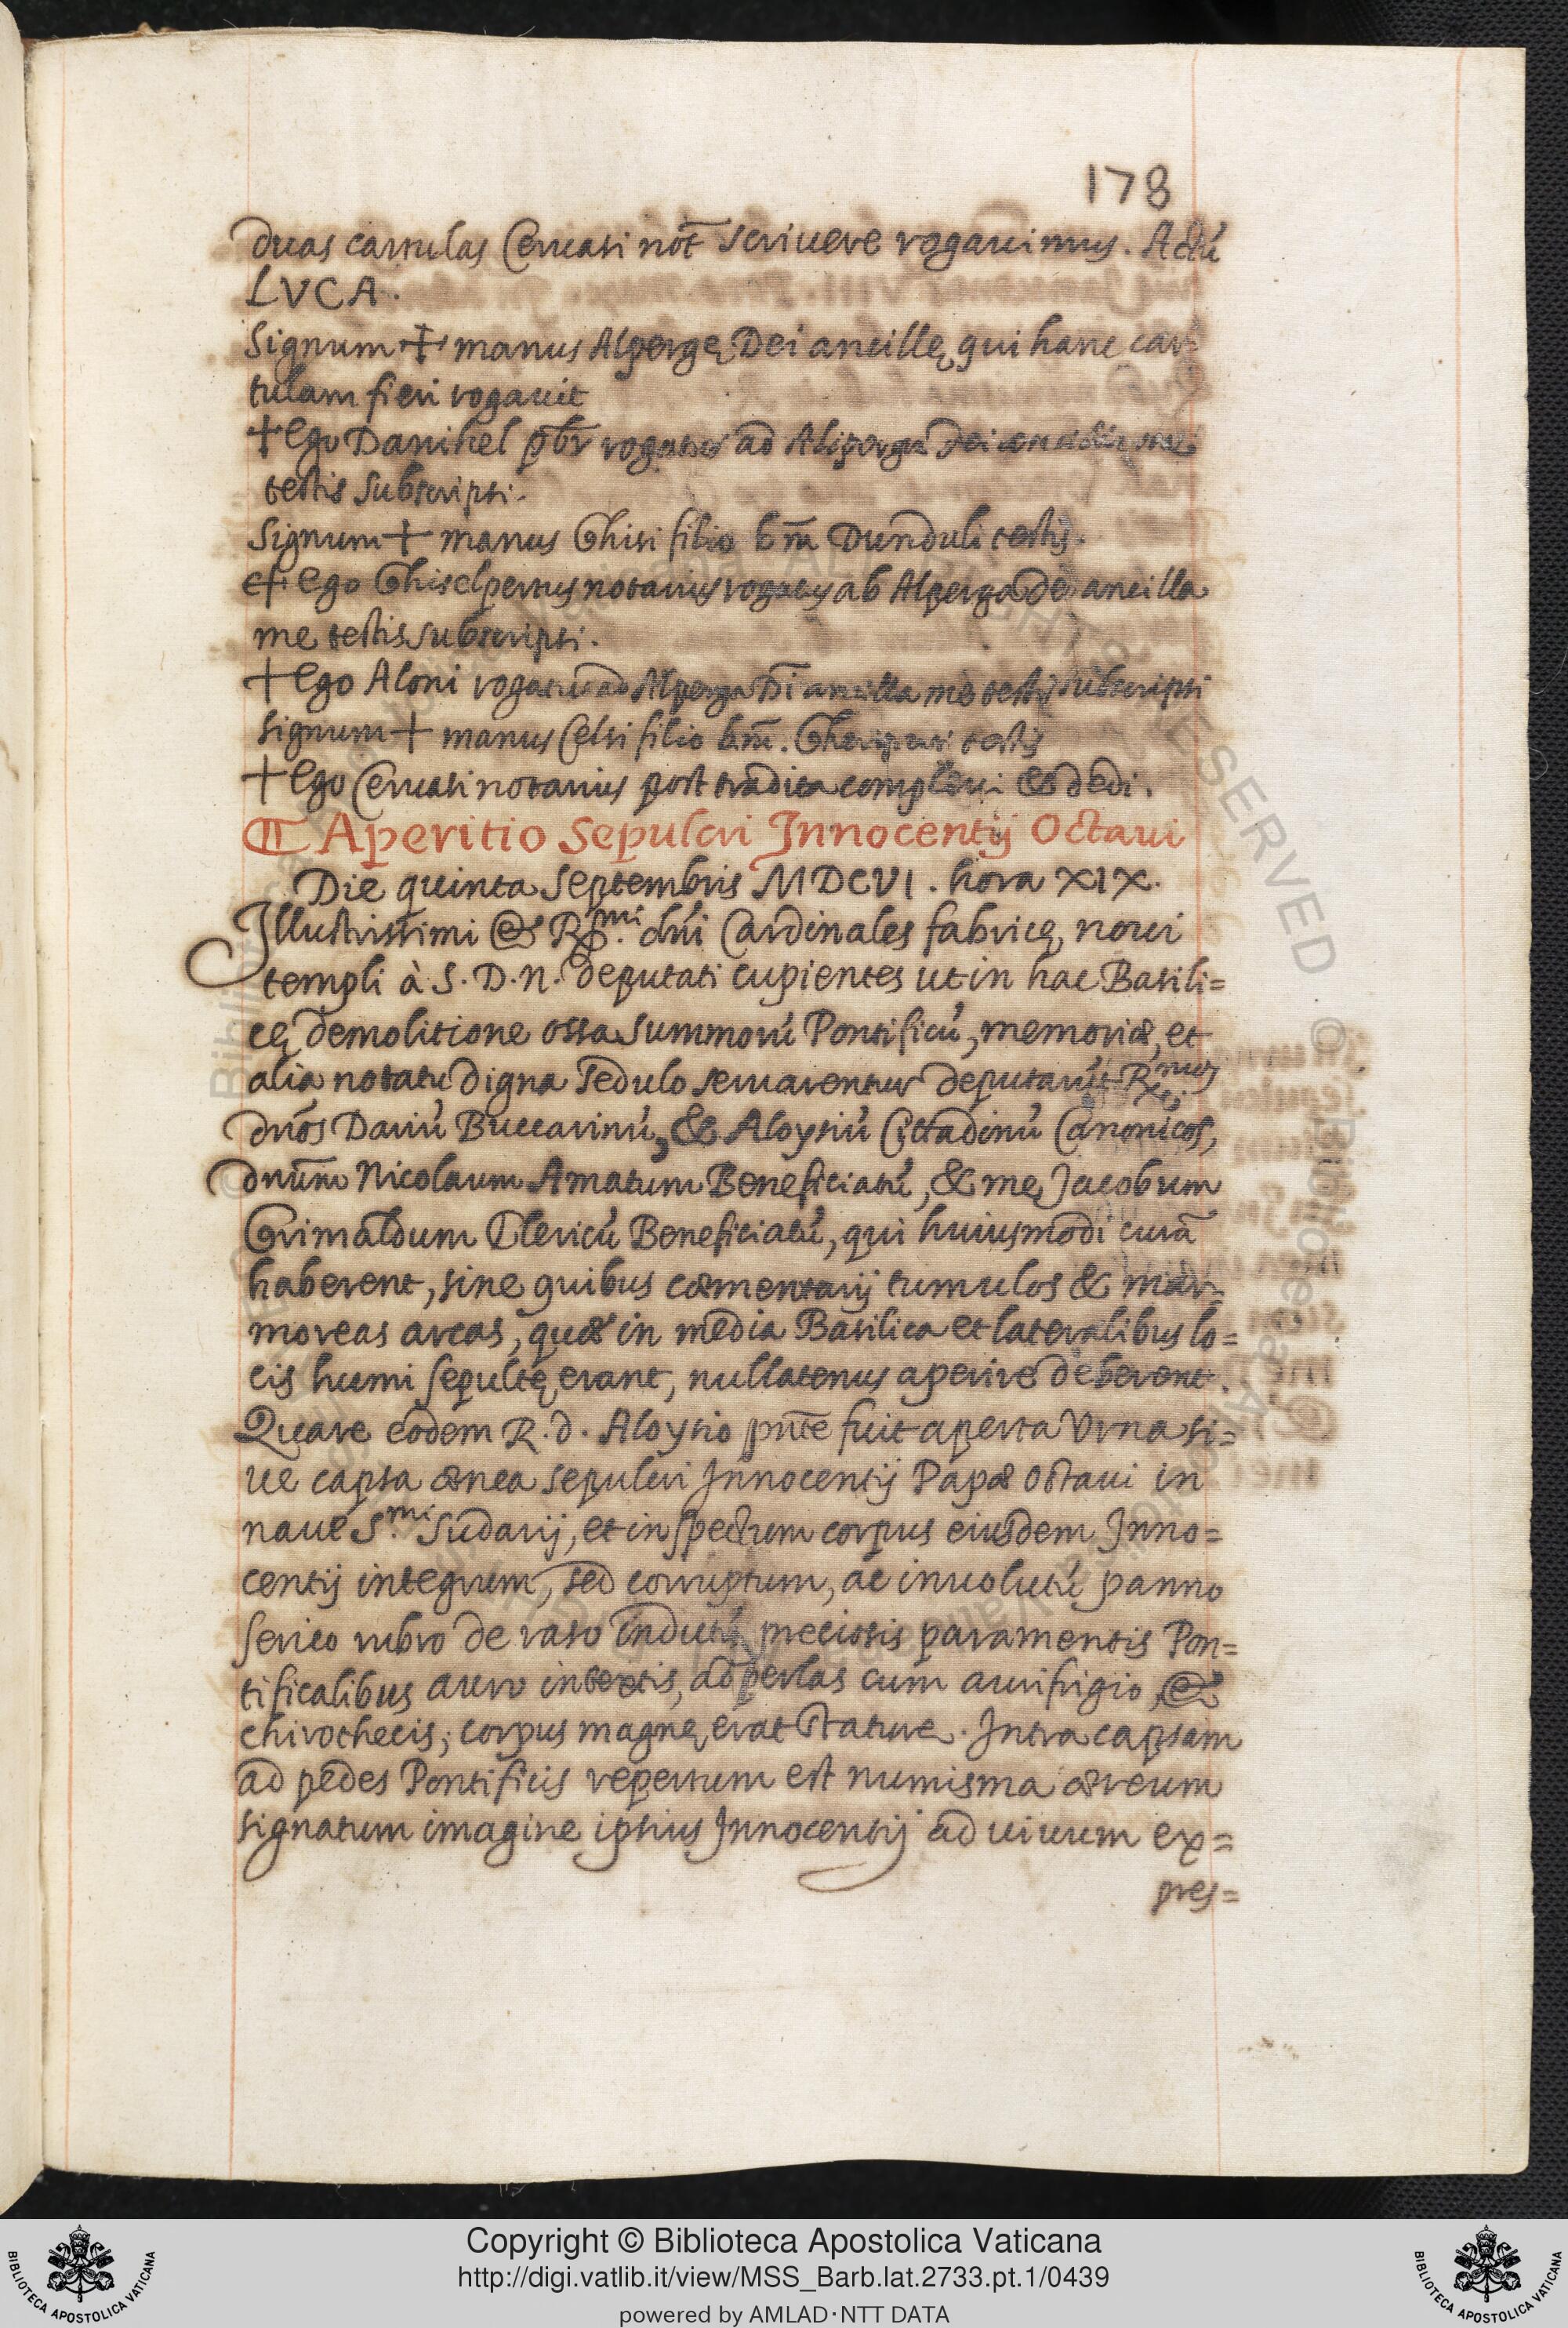 178
duas cartulas Ceruasi not̄ scriuere rogauimus. Actū
LVCA.
Signum + manus Alpergę Dei ancillę, qui hanc car=
tulam fieri rogauit
+ Ego Danihel pb̄r rogatus ad Alipergā Dei
testis subscripsi.
Signum + manus Ghisi filio bm̄ Dunduli testis.
+ Ego Ghiselpertus notarius rogatus ab Alperga dei ancilla
me testis subscripsi.
+ Ego Aloni rogatus ad Alperga Dī ancilla me testis subscripsi
Signum + manus Celsi filio bm̄. testis
+ Ego Ceruasi notarius post tradita compleui & dedi.
Aperitio Sepulcri Innocentij Octaui
Die quinta Septembris MDCVI. hora XIX.
Illustrissimi & R.mi dn̄i Cardinales fabricę noui
templi à S. D. N. deputati cupientes ut in hac Basili=
cę demolitione ossa summorū Pontificū, memoriæ, et
alia notatu digna sedulo seruarentur deputarūt R.mos
dnōs Dariū Buccarinū, & Aloysiū Cittadinū Canonicos,
dnūm Nicolaum Amatum Beneficiatū, & me Jacobum
Grimaldum Clericū Beneficiatū, qui huiusmodi curā
haberent, sine quibus cæmentarij tumulos & mar=
moreas arcas, quæ in media Basilica et lateralibus lo=
cis humi sepultę erant, nullatenus aperire deberent.
Quare eodem R. d. Aloysio pn̄te fuit aperta Vrna si=
ue capsa ænea sepulcri Innocentij Papæ Octaui in
naue S.mi Sudarij, et inspectum corpus eiusdem Inno=
centij integrum, sed corruptum, ac inuolutū panno
serico rubro de raso indutū preciosis paramentis Pon=
tificalibus auro intextis, ad perlas cum aurifrigio, &
chirothecis; corpus magnę erat staturę. Intra capsam
ad pedes Pontificis repertum est numisma æreum
signatum imagine ipsius Innocentij ad uiuum ex=
pres=
Copyright © Biblioteca Apostolica Vaticana
http://digi.vatlib.it/view/MSS_Barb.lat.2733.pt.1/0439
powered by AMLAD·NTT DATA
BIBLIOTECA APOSTOLICA VATICANA
BIBLIOTECA APOSTOLICA VATICANA